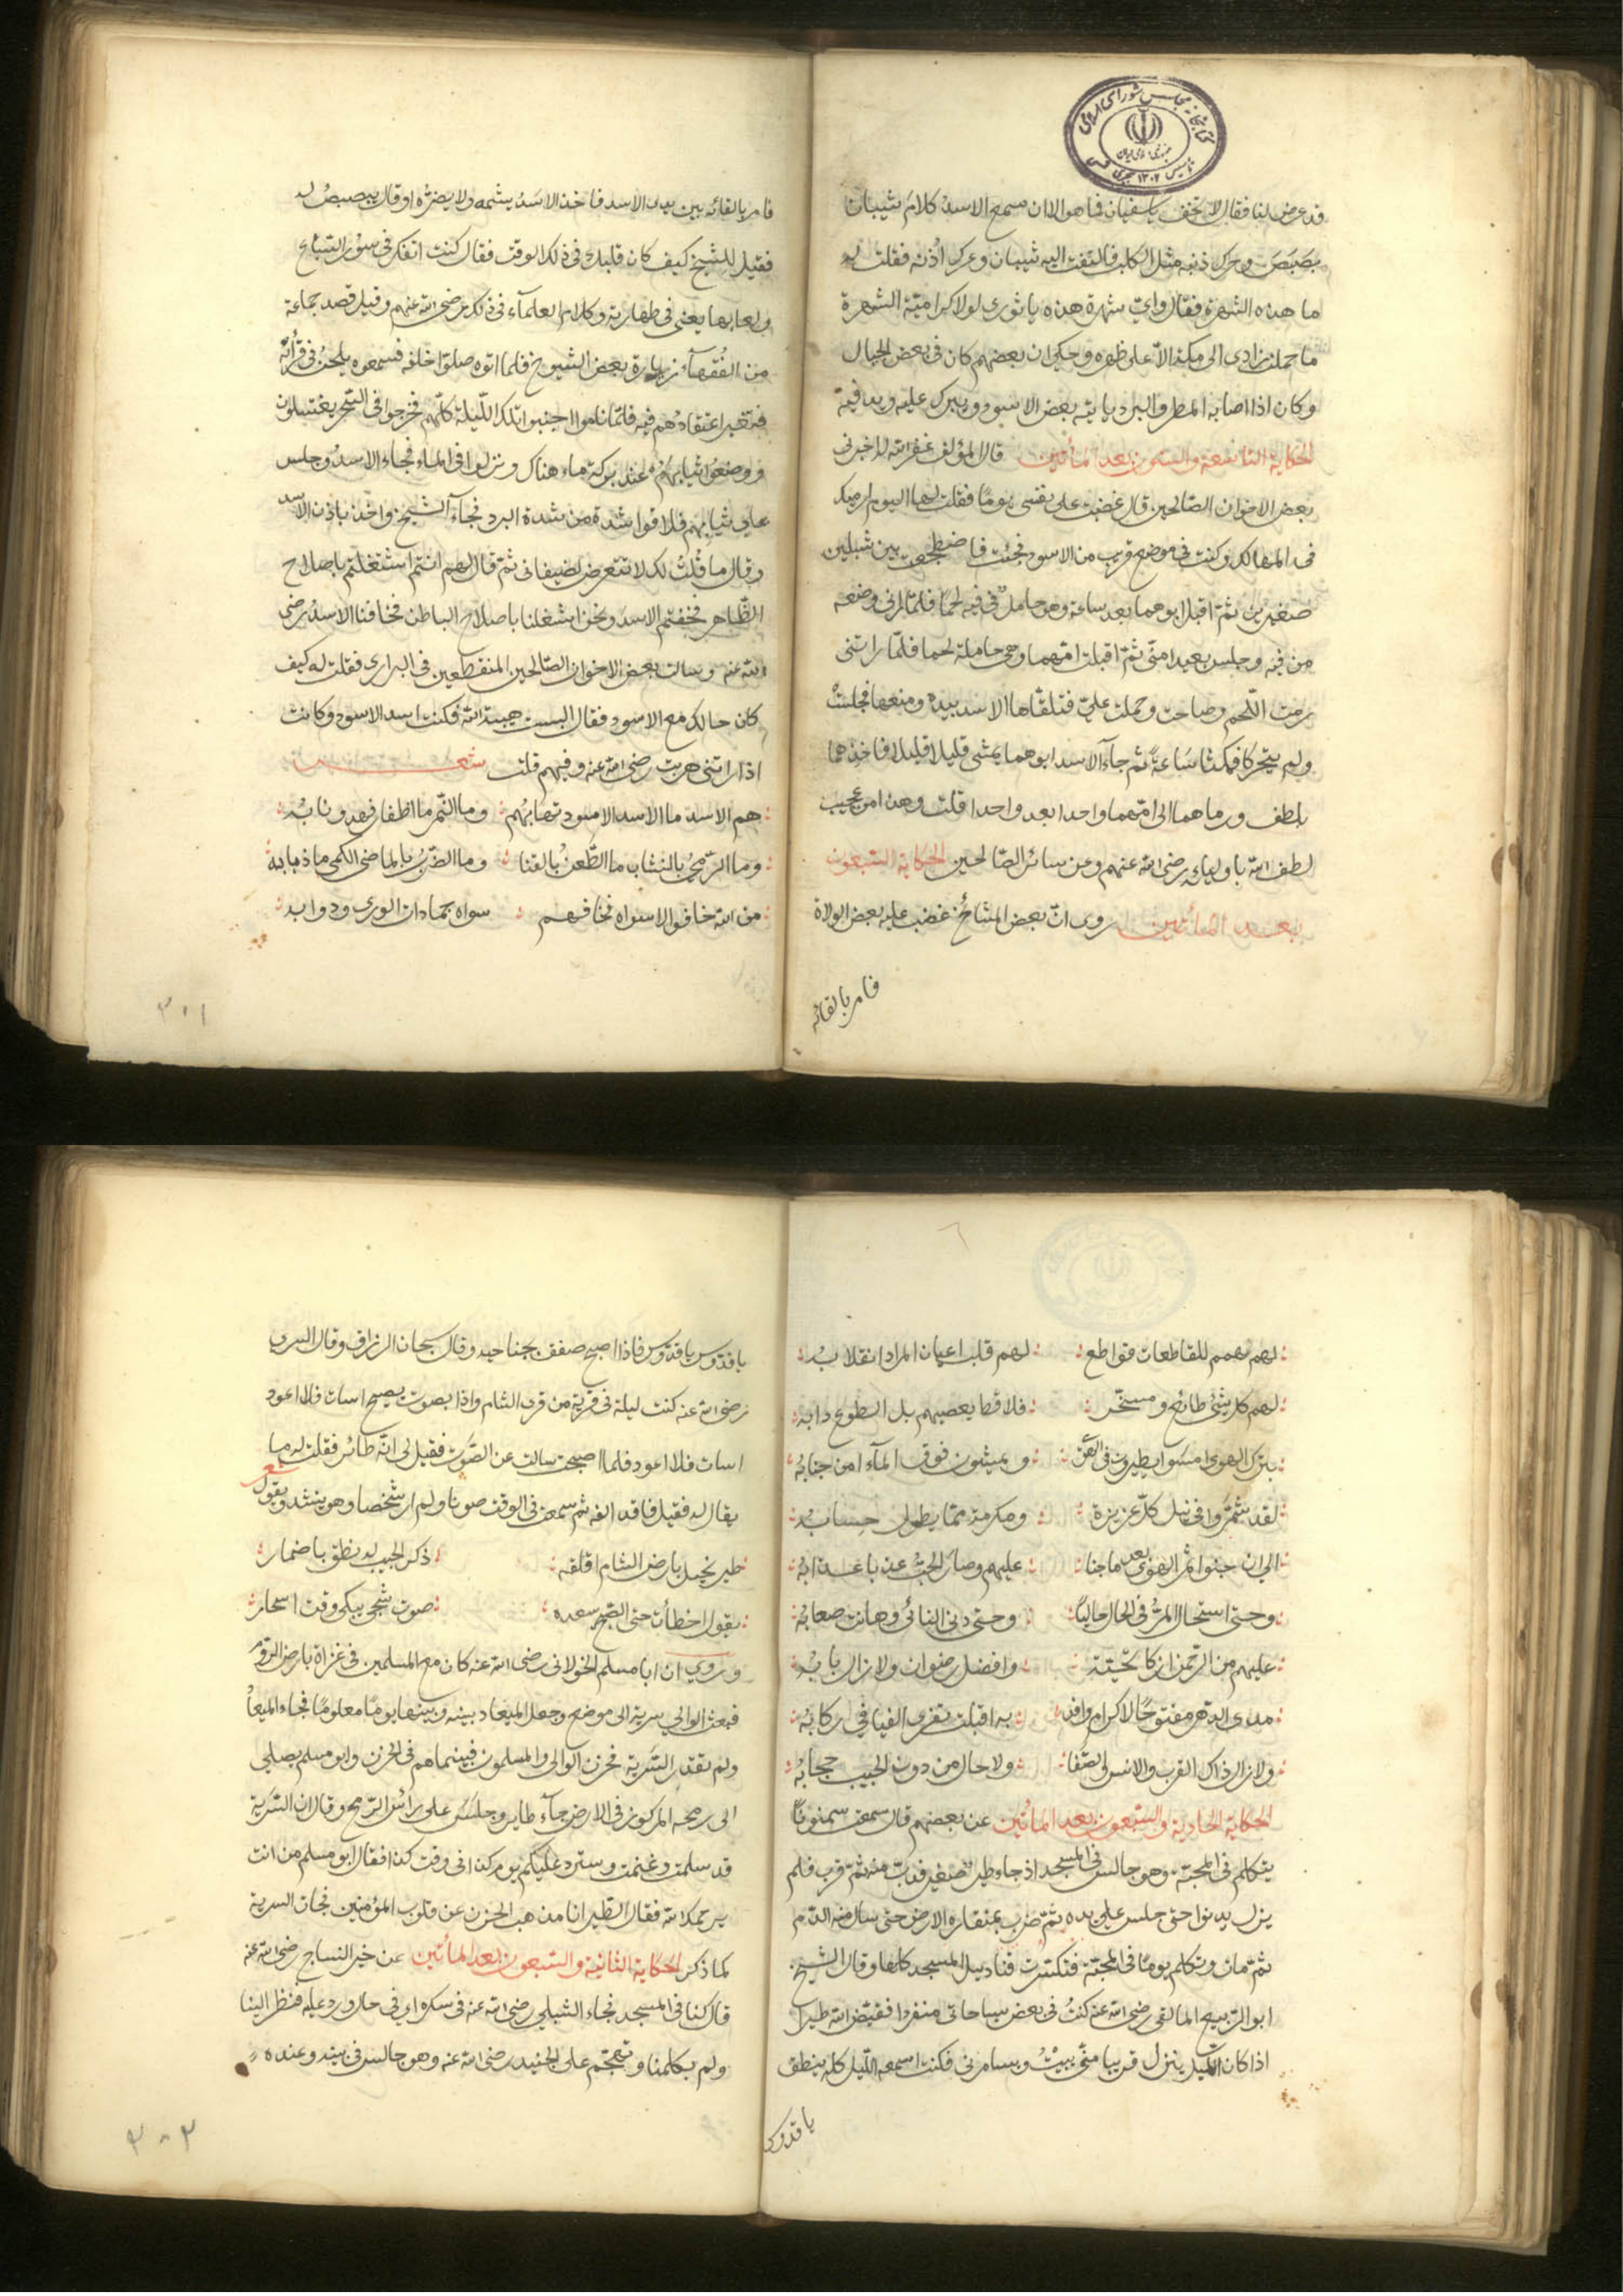 قد عرض لنا فقال لا تخف يا سفيان فما هو الا ان سمع الاسد كلام شيبان
بصبص وحرك ذنبه مثل الكلب فالتفت اليه شيبان وعرك اذنه فقلت له
ما هذه الشهرة فقال واي شهرة هذه يا ثوري لولا كراهية الشهرة
ما حملت زادي الى مكة الا على ظهره وحكي ان بعضهم كان في بعض الجبال
وكان اذا اصابه المطر والبرد ياتيه بعض الاسود ويبرك عليه ويدفيه
الحكاية التاسعة والستون بعد المأتين قال المؤلف غفر الله له اخبرني
بعض الاخوان الصالحين قال غضبت على نفسي يوما فقلت لها اليوم ارميك
في المهالك وكنت في موضع قريب من الاسود فجئت فاضطجعت بين شبلين
صغيرين ثم اقبل ابوهما بعد ساعة وهو حامل في فيه لحما فلما رآني وضعه
من فيه وجلس بعيدا مني ثم اقبلت امهما وهي حاملة لحما فلما راتني
رمت اللحم وصاحت وحملت علي فتلقاها الاسد بيده ومنعها فجلست
ولم يتحركا فمكثا ساعة ثم جآء الاسد ابوهما يمشي قليلا قليلا فاخذهما
بلطف ورماهما الى امهما واحدا بعد واحد قلت وهذا من عجيب
لطف الله باوليائه رضي الله عنهم وعن سائر الصالحين الحكاية السبعون
بعد المأتين روى ان بعض المشائخ غضب عليه بعض الولاة
فامر بالقائه
فامر بالقائه بين يدى الاسد فاخذ الاسد يشمه ولا يضره او قال يبصبص له
فقيل للشيخ كيف كان قلبك في ذلك الوقت فقال كنت اتفكر في سؤر السباع
ولعابها يعني في طهارته وكلام العلمآء في ذلك رضي الله عنهم وقيل قصد جماعة
من الفقهآء زيارة بعض الشيوخ فلما اتوه صلوا خلفه فسمعوه يلحن في قرأته
فتغير اعتقادهم فيه فلما ناموا اجنبوا تلك الليلة كلهم فخرجوا في السحر يغتسلون
ووضعوا ثيابهم عند بركة ماء هناك ونزلوا في الماء فجاء الاسد وجلس
على ثيابهم فلاقوا شدة من شدة البرد فجآء الشيخ واخذ باذن الاسد
وقال ما قلت لك لا تتعرض لضيفاني ثم قال لهم انتم اشتغلتم باصلاح
الظاهر فخفتم الاسد ونحن اشغلنا باصلاح الباطن فخافنا الاسد رضي
الله عنه وسالت بعض الاخوان الصالحين المنقطعين في البراري فقلت له كيف
كان حالك مع الاسود فقال البست هيبة الله فكنت اسد الاسود وكانت
اذا راتني هربت رضي الله عنه وفيهم قلت شعر
هم الاسد ما الاسد الاسود تهابهم وما النمر ما اظفار فهد ونابه
وما الرمي بالنشاب ما الطعن بالقنا وما الضرب بالماضي الكمي ما ذبابه
من الله خافوا لا سواه فخافهم سواه جمادات الورى ودوابه
٣٠١
لهم همم للقاطعات قواطع لهم قلب اعيان المراد انقلابه
لهم كل شئ طائع ومسخر فلا قط يعصيهم بل الطوع دابه
بترك الهوى امسوا يطيرون في الهوى ويمشون فوق المآء امن جنابه
لقد شمروا في نيل كل عزيزة ومكرمة مما يطول حسابه
الى ان جنوا ثمر الهوى بعد ما جنا عليهم وصار الحب عذبا عذابه
وحتى استحال المر في الحال حاليا وحتى دنى النائي وهانت صعابه
عليهم من الرحمن ازكا تحية وافضل رضوان ولا زال بابه
مدى الدهر مفتوحا لاكرام وافد به اقبلت تفري الفيافي ركابه
ولا زال ذاك القرب والانس والصفا ولا حال من دون الحبيب حجابه
الحكاية الحادية والسبعون بعد المأتين عن بعضهم قال سمعت سمنونا
يتكلم في المحبة وهو جالس في المسجد اذ جاء طير صغير فدب منه ثم قرب فلم
يزل يدنوا حتى جلس على يده ثم ضرب بمنقاره الارض حتى سال منه الدم
ثم مات وتكلم يوما في المحبة فتكسرت قناديل المسجد كلها وقال الشيخ
ابو الربيع المالقي رضي الله عنه كنت في بعض سياحاتي منفردا فقيض الله طيرا
اذا كان الليل ينزل قريبا مني يبيت ويسامرني فكنت اسمعه الليل كله ينطق
يا قدوس
يا قدوس يا قدوس فاذا اصبح صفق بجناحيه وقال سبحان الرزاق وقال السري
رضي الله عنه كنت ليلة في قرية من قرى الشام واذا بصوت يصيح اسات فلا اعود
اسات فلا اعود فلما اصبحت سالت عن الصوت فقيل لي انه طائر فقلت له ما
يقال له فقيل فاقد الفه ثم سمعت في الوقت صوتا ولم ار شخصا وهو ينشد ويقول شعر
طير نحيل بارض الشام اقلقه ذكر الحبيب له نطق باضمار
يقول اخطأت حتى الصبح يسعده صوت شجي يبكي وقت اسحار
وروي ان ابا مسلم الخولاني رضي الله عنه كان مع المسلمين في غزاة بارض الروم
فبعث الوالي سرية الى موضع وجعل الميعاد بينه وبينها يوما معلوما فجاء الميعاد
ولم تقدم السرية فحزن الوالي والمسلمون فبينما هم في الحزن وابو مسلم يصلي
الى رمحه المركوز في الارض جآء طاير وجلس على راس الرمح وقال ان السرية
قد سلمت وغنمت وسترد عليكم يوم كذا في وقت كذا فقال ابو مسلم من انت
يرحمك الله فقال الطير انا مذهب الحزن عن قلوب المؤمنين فجات السرية
كما ذكر الحكاية الثانية والسبعون بعد المأتين عن خير النساج رضي الله عنه
قال كنا في المسجد فجاء الشبلي رضي الله عنه في سكره اي في حال ورد عليه فنظر الينا
ولم يكلمنا وتهجم على الجنيد رضي الله عنه وهو جالس في بيته وعنده